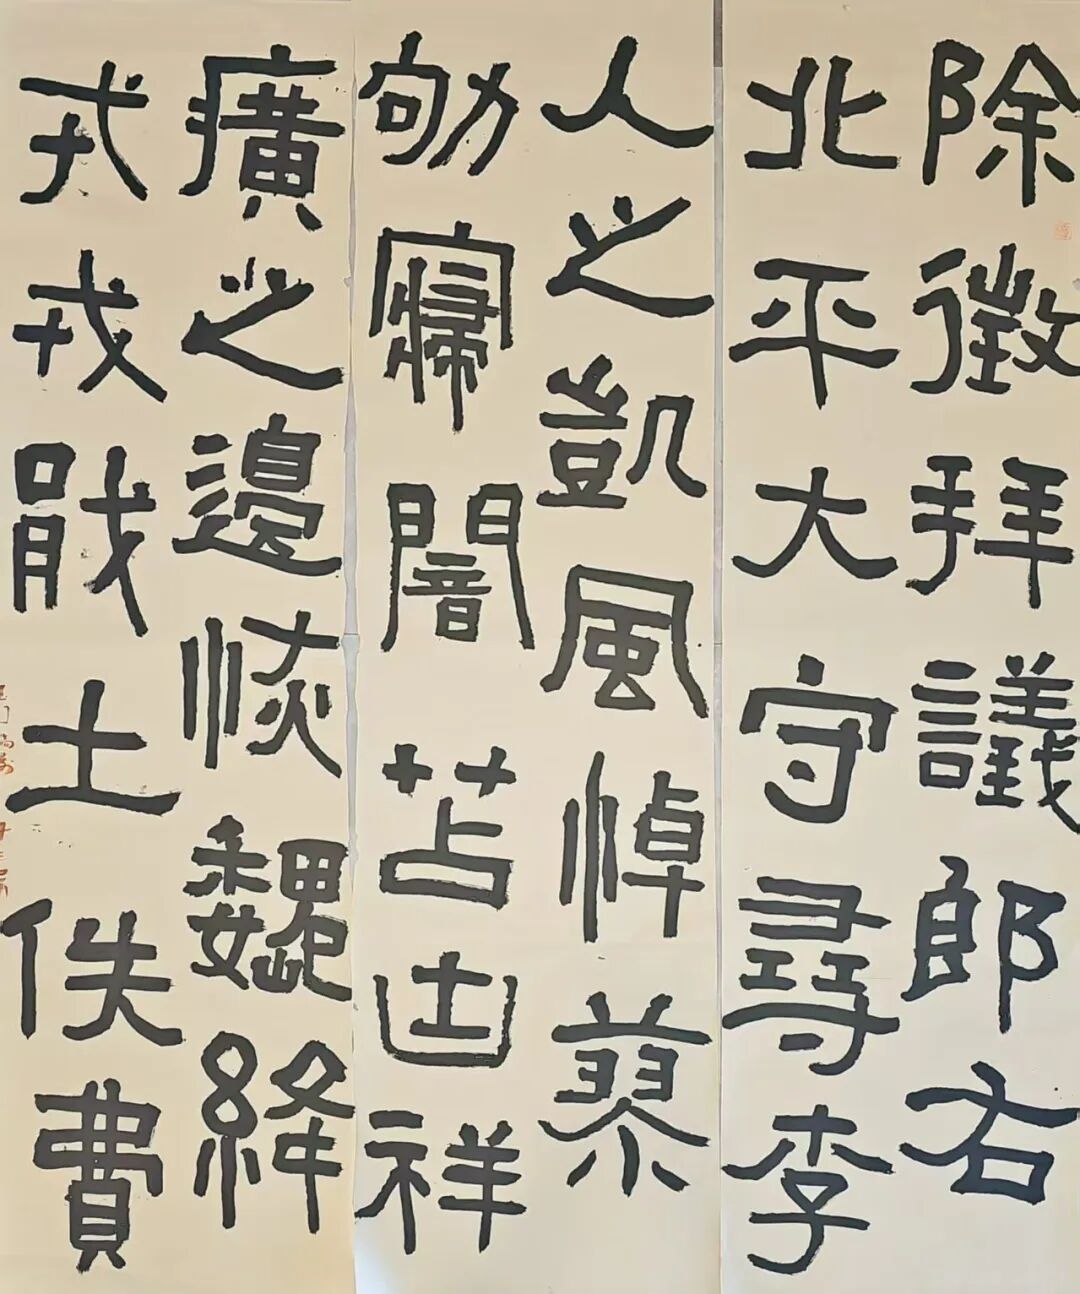 除徵拜議郎右
北平大守尋李
人之凱風悼蓼
劬寢闇苫凷祥
廣之邊恢魏絳
戎戎戢士佚費